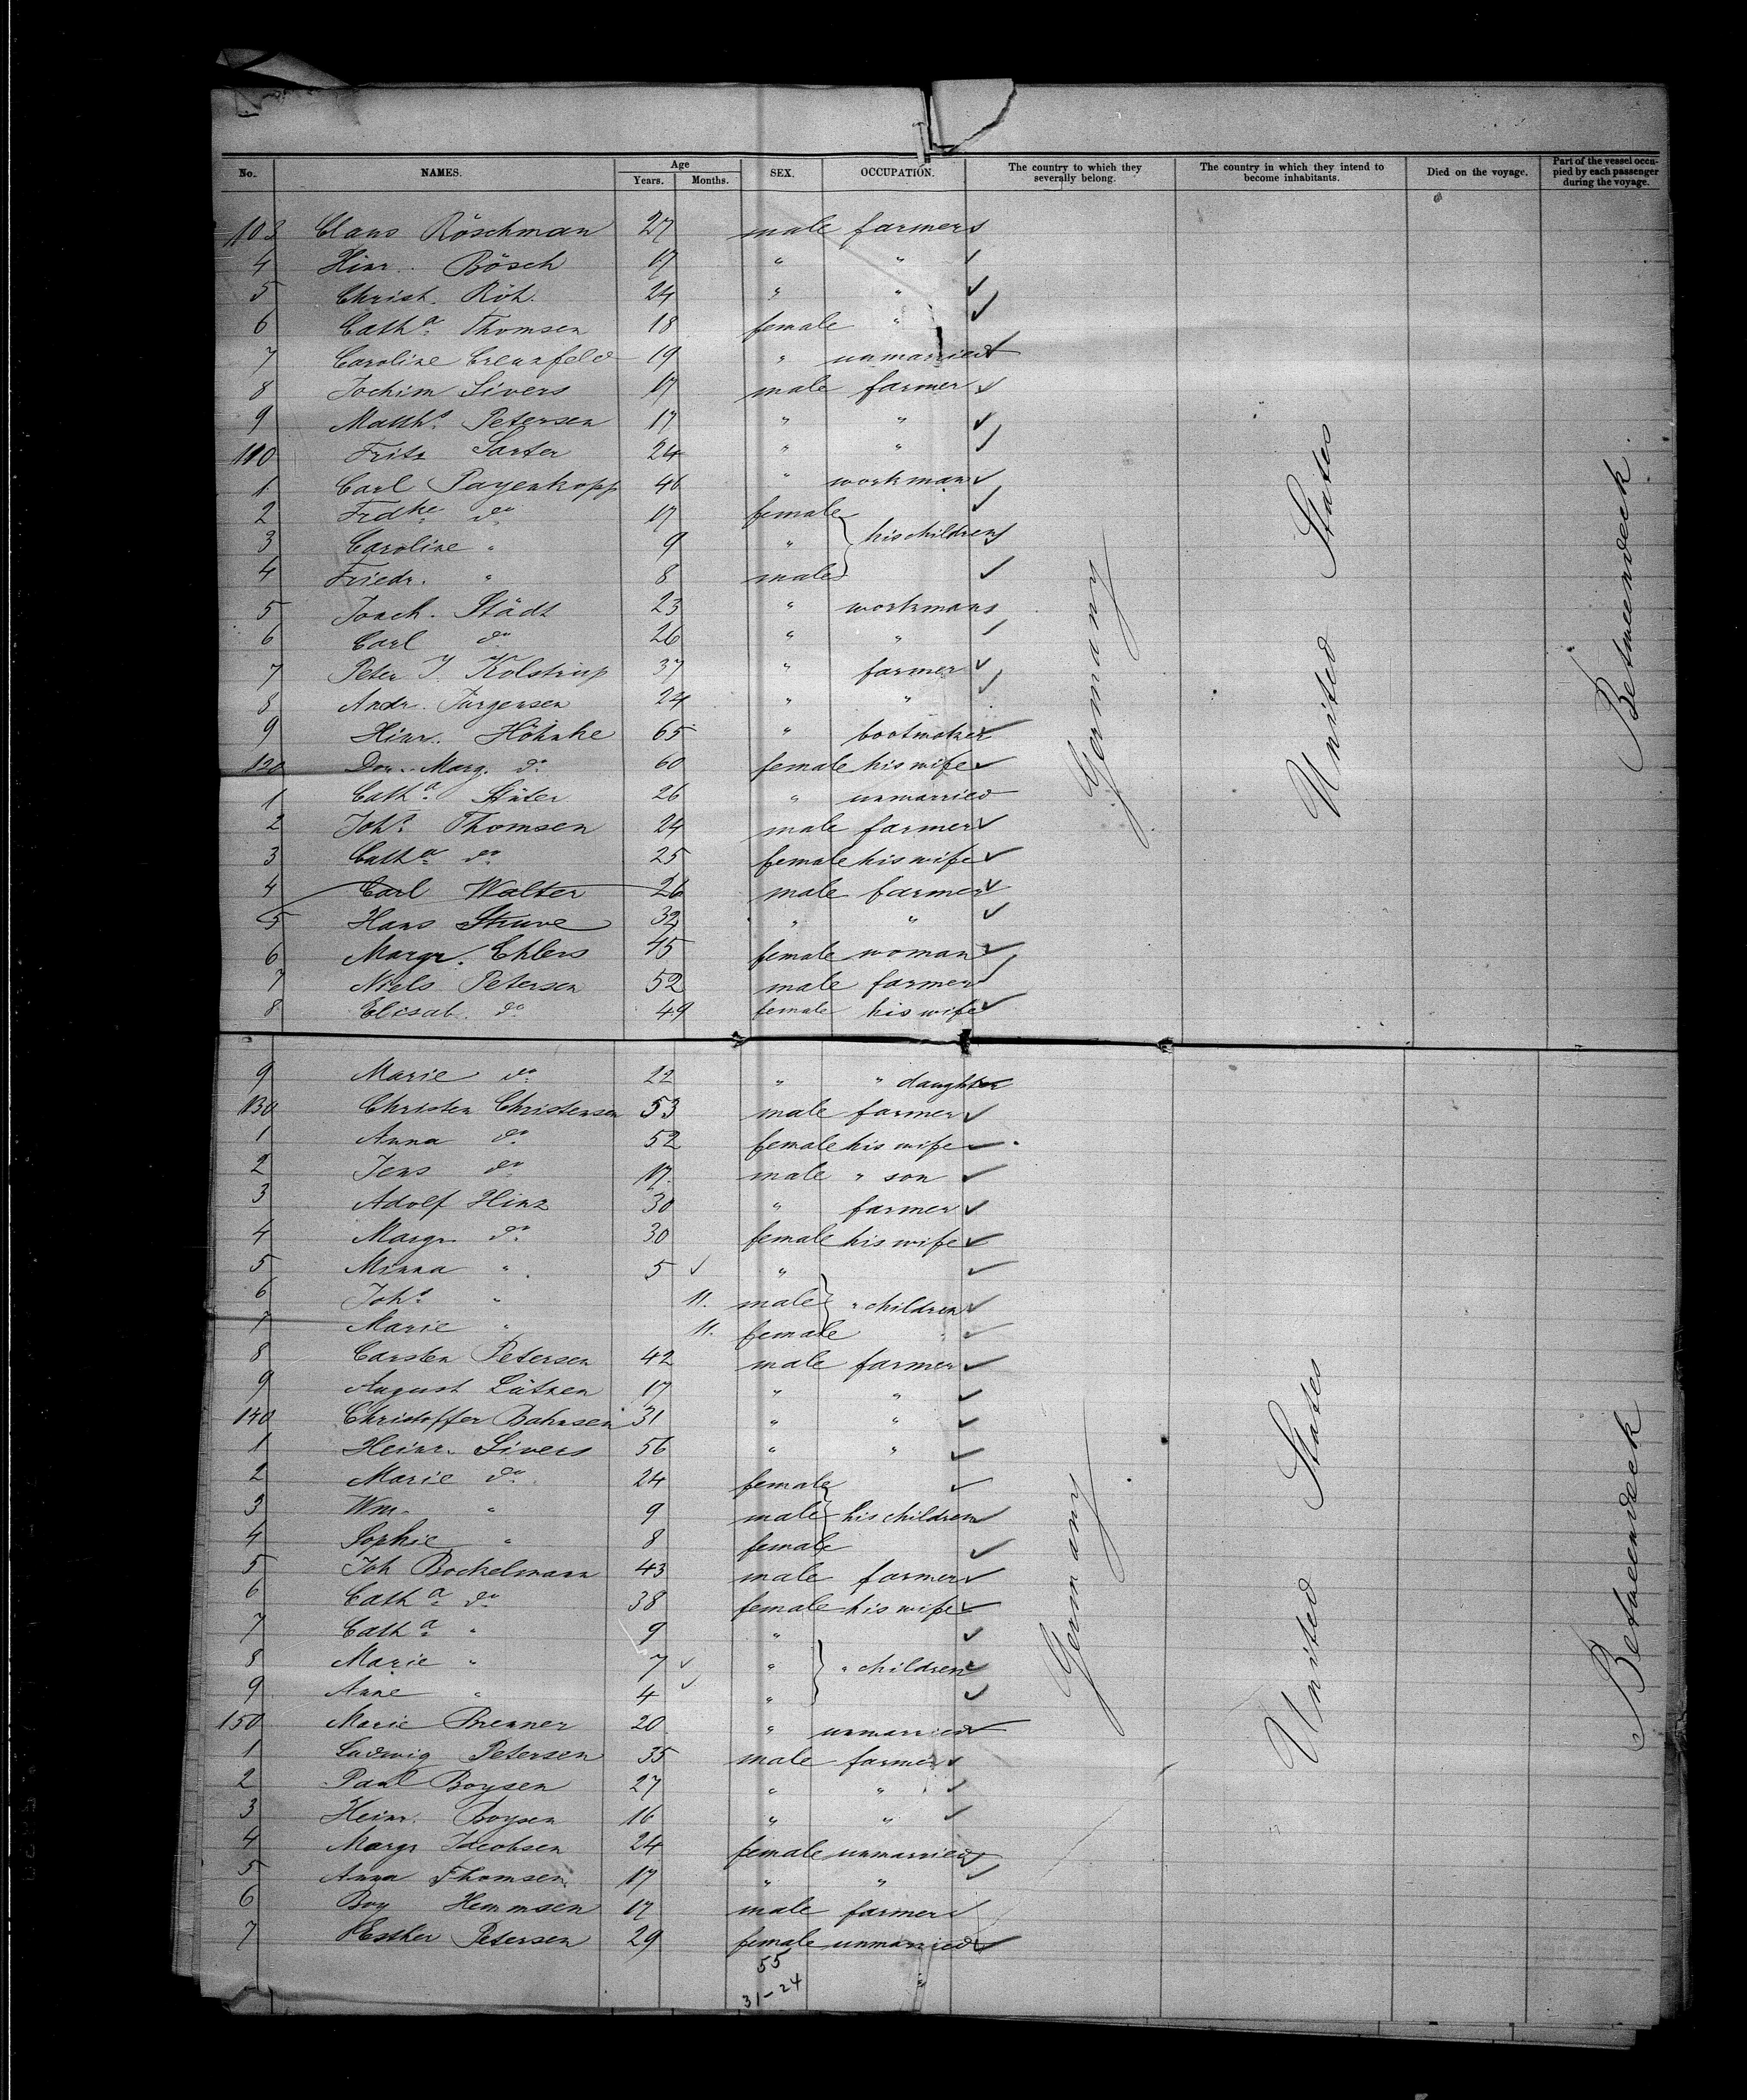 No. NAMES. Age Years. Months. SEX. OCCUPATION. The country to which they severally belong. The country in which they intend to become inhabitants. Died on the voyage. Part of the vessel occupied by each passenger during the voyage.
103 Claus Röschman 27 male farmer
4 Hinr. Bösch 17 " "
5 Christ. Röh. 24 " "
6 Catha Thomsen 18 female "
7 Caroline 19 " unmarried
8 Jochim Sivers 17 male farmer
9 Matths Petersen 17 " "
110 Fritz Sarter 24 " "
1 Carl Payenkopp 46 " workman
2 Frdke do 17 female
3 Caroline " 9 " his children
4 Friedr. " 8 male
5 Joach. Städt 23 " workman
6 Carl do 26 " "
7 Peter J. Kolstrup 37 " farmer
8 Andr. Jürgensen 24 " "
9 Hinr. Höhnke 65 " bootmaker
120 Dor. Marg. do 60 female his wife
1 Catha Stüter 26 " unmarried
2 Johs Thomsen 24 male farmer
3 Catha do 25 female his wife
4 Carl Walter 26 male farmer
5 Hans Struve 32 " "
6 Margr. Ehlers 45 female woman
7 Niels Petersen 52 male farmer
8 Elisab. do 49 female his wife
Germany
United States
Betweendeck
9 Marie do 22 " " daughter
130 Christen Christensen 53 male farmer
1 Anna do 52 female his wife
2 Jens do 17 male " son
3 Adolf Hinz 30 " farmer
4 Margr do 30 female his wife
5 Minna " 5 "
6 Johs " 11. male " children
7 Marie " 11. female "
8 Carsten Petersen 42 male farmer
9 August Lützen 17 " "
140 Christoffer Bahnsen 31 " "
1 Heinr. Sivers 56 " "
2 Marie do 24 female
3 Wm. " 9 male his children
4 Sophie " 8 female
5 Joh Bockelmann 43 male farmer
6 Catha do 38 female his wife
7 Catha " 9 "
8 Marie " 7 " " children
9 Anne " 4 "
150 Marie Brenner 20 " unmarried
1 Ludwig Petersen 35 male farmer
2 Paul Boysen 27 " "
3 Heinr. Boysen 16 " "
4 Margr Jacobsen 24 female unmarried
5 Anna Thomsen 17 " "
6 Boy Hemmsen 17 male farmer
7 Esther Petersen 29 female unmarried
Germany
United States
Betweendeck
55 "
31-24